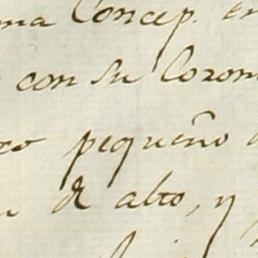 Concep. en
con su Coron
pequeño
de alto, y